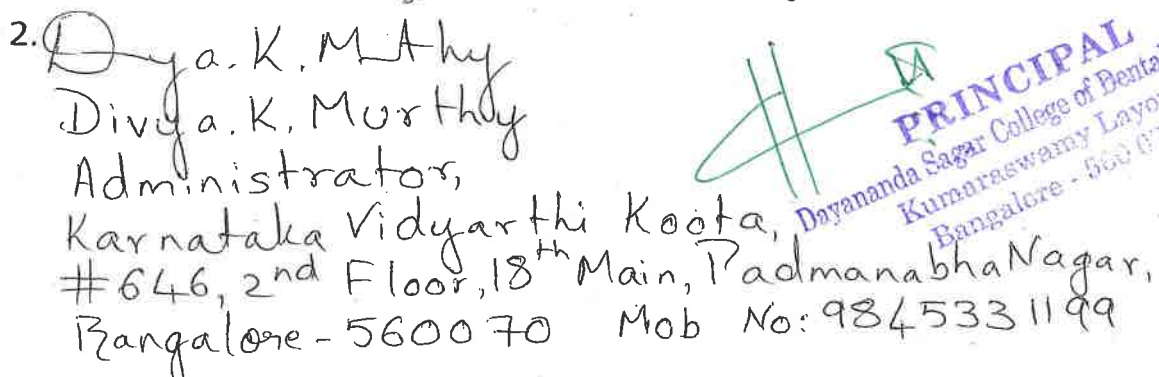 2. Dya. K. M Thy
Divya. K. Murthy
Administrator,
Karnataka Vidyarthi Koota,
#646, 2nd Floor, 18th Main, PadmanabhaNagar,
Bangalore - 560070 Mob No: 9845331199
PRINCIPAL
Dayananda Sagar College of Dental
Kumaraswamy Layou
Bangalore - 560